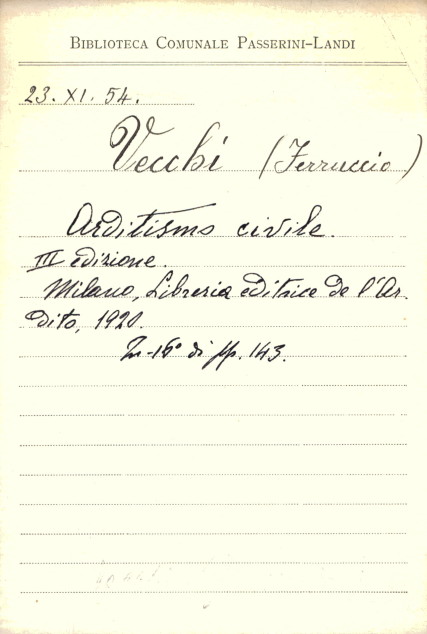 BIBLIOTECA COMUNALE PASSERINI-LANDI
23. XI. 54.
Vecchi (Ferruccio)
Arditismo civile.
III edizione.
Milano, Libreria editrice de l'Ar-
dito, 1920.
In-16° di pp. 143.